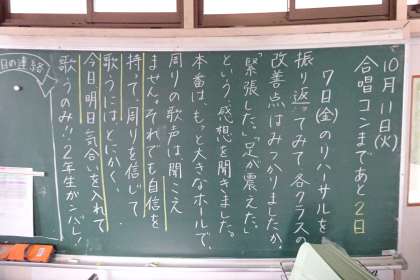 10月11日(火)
合唱コンまであと2日
7日(金)のリハーサルを
振り返ってみて各クラスの
改善点はみつかりましたか。
「緊張した。」「足が震えた。」
という、感想を聞きました。
本番は、もっと大きなホールで、
周りの歌声は聞こえ
ません。それでも自信を
持って、周りを信じて
歌うにはとにかく、
今日明日気合いを入れて
歌うのみ!!2年生がンバレ!